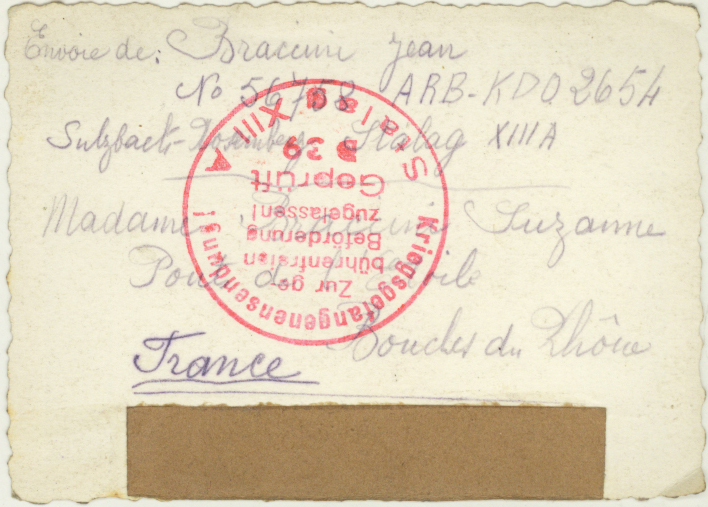 Envoie de: Braccini Jean
No 56758 ARB-KDO 2654
Sulzbach-Rosenberg Stalag XIII A
Madame Braccini Suzanne
Pont de l'Etoile
Bouches du Rhône
France
Kriegsgefangenensendung!
Stalag XIII A
39
Geprüft
Zur ge-
bührenfreien
Beförderung
zugelassen!